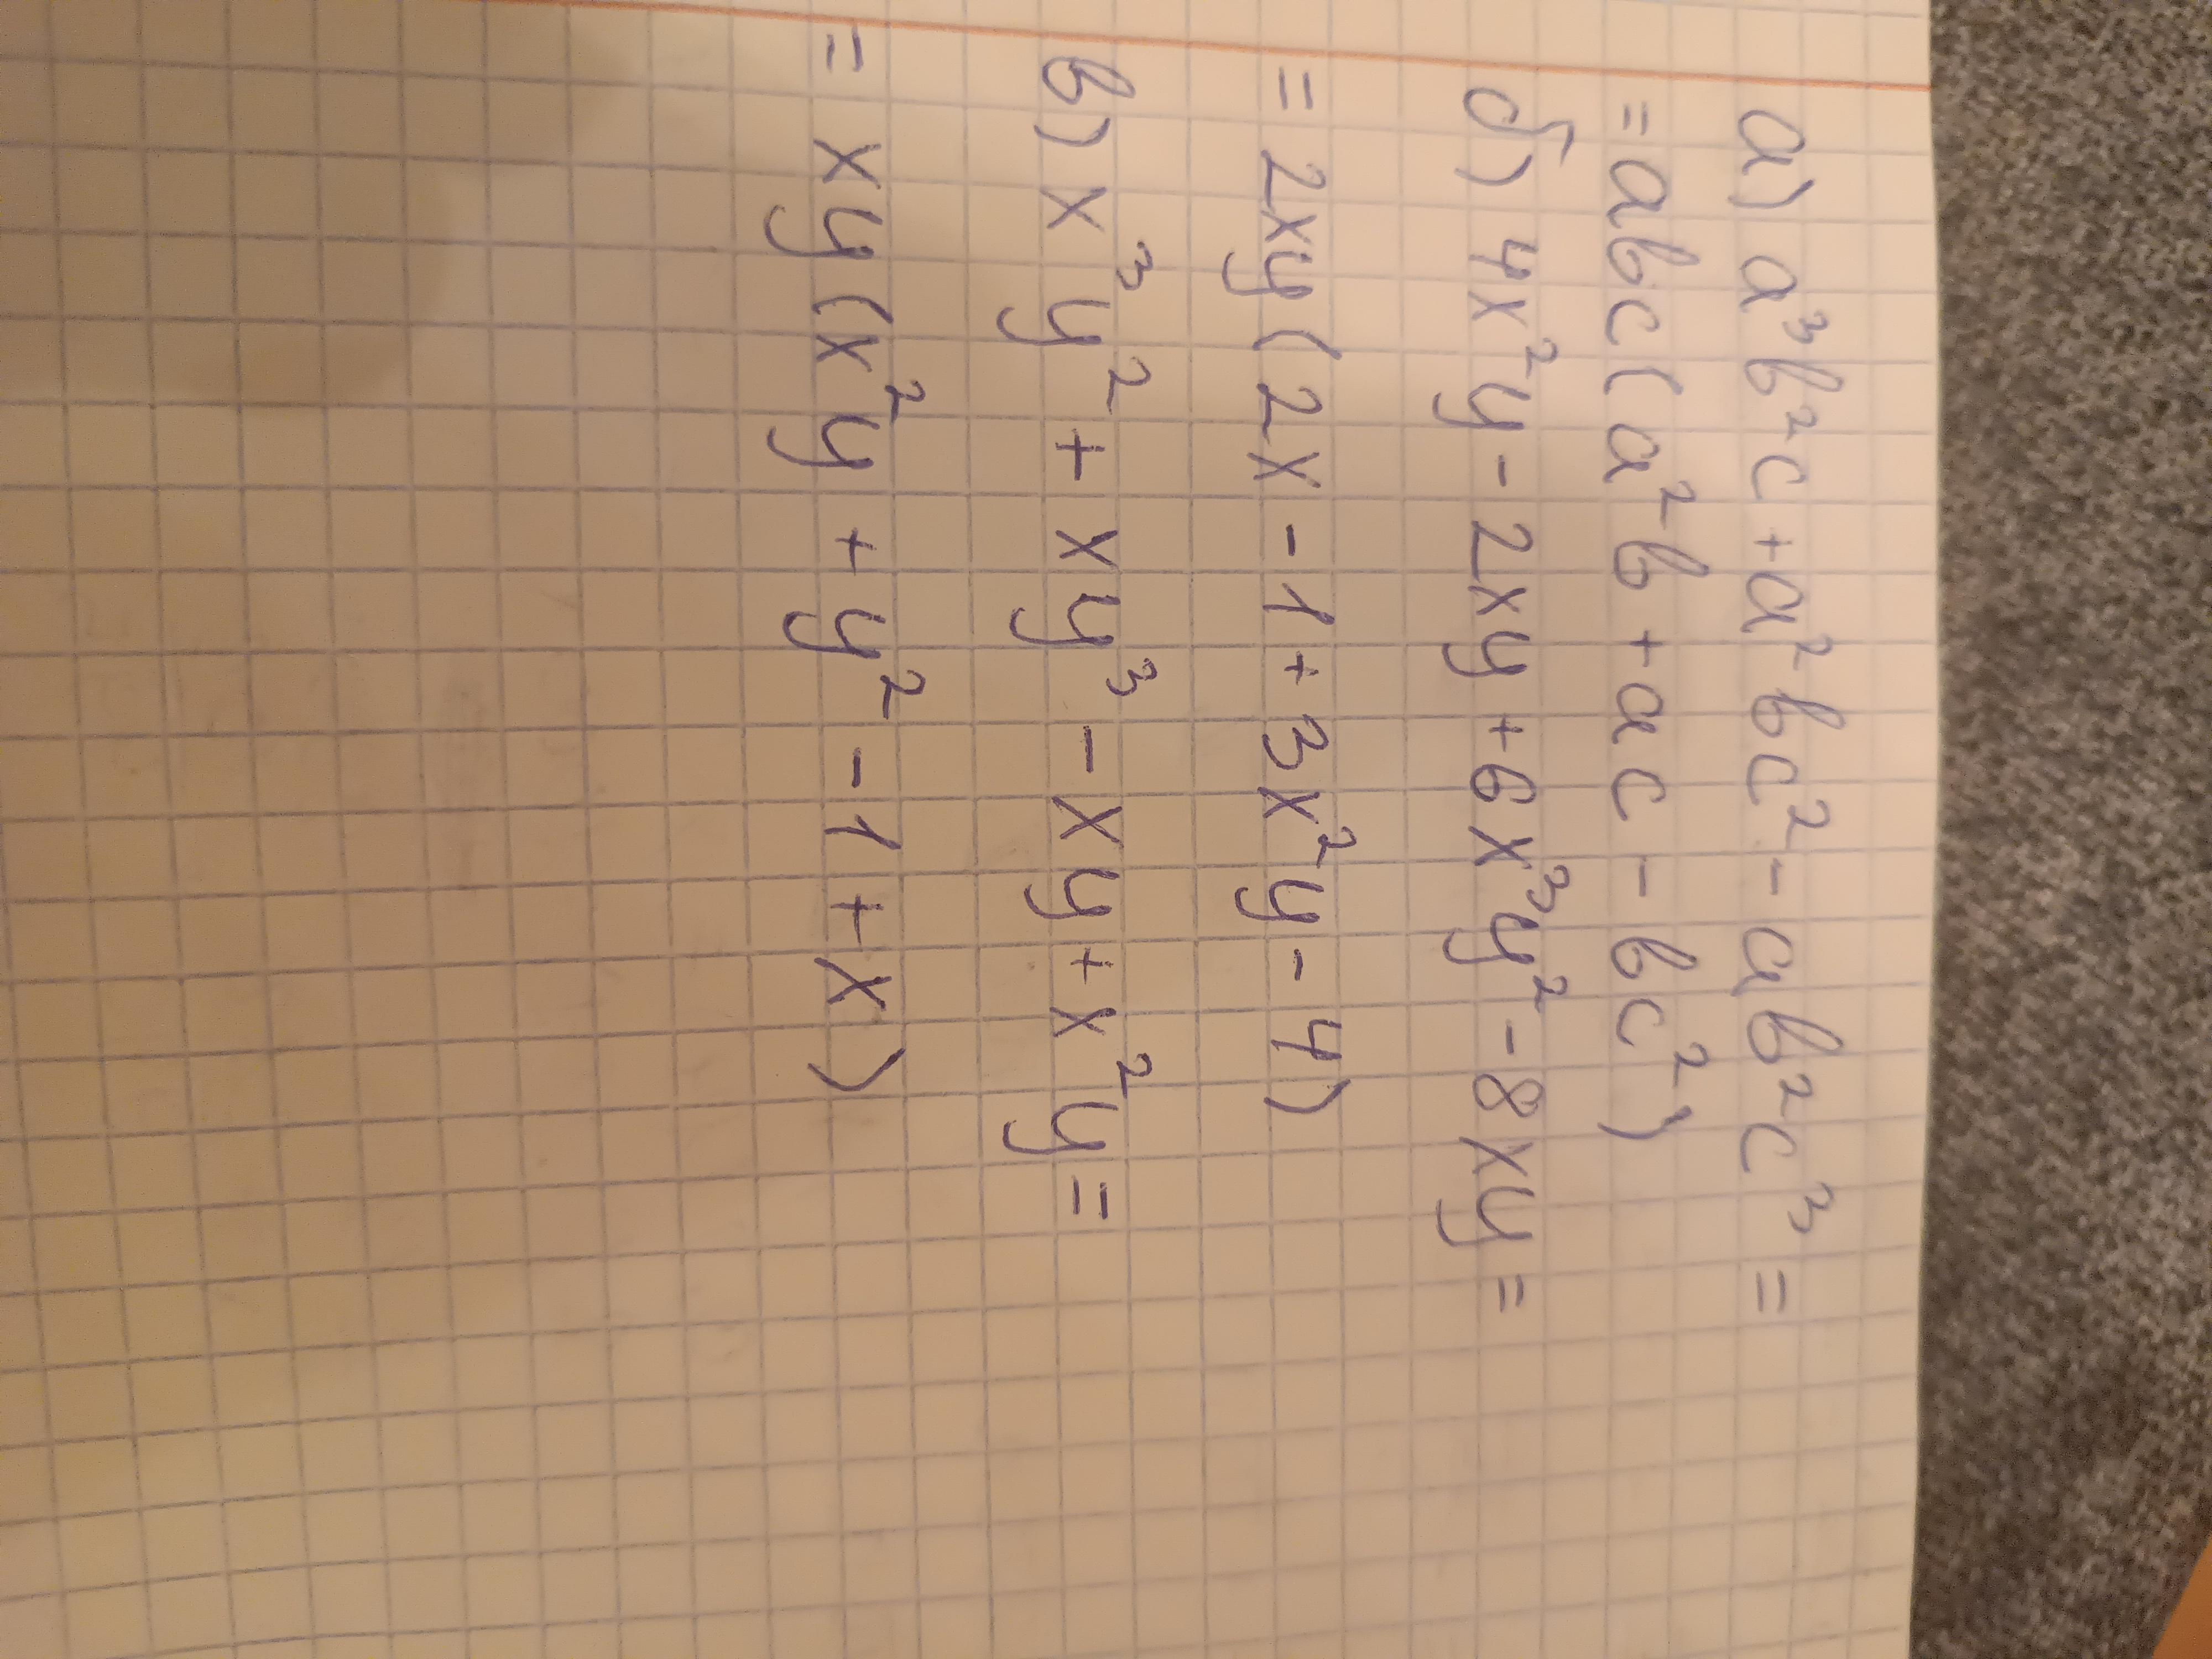 а) a³b²c + a²bc² - ab²c³ =
= abc(a²b + ac - bc²)
б) 4x²y - 2xy + 6x³y² - 8xy =
= 2xy(2x - 1 + 3x²y - 4)
в) x³y² + xy³ - xy + x²y =
= xy(x²y + y² - 1 + x)